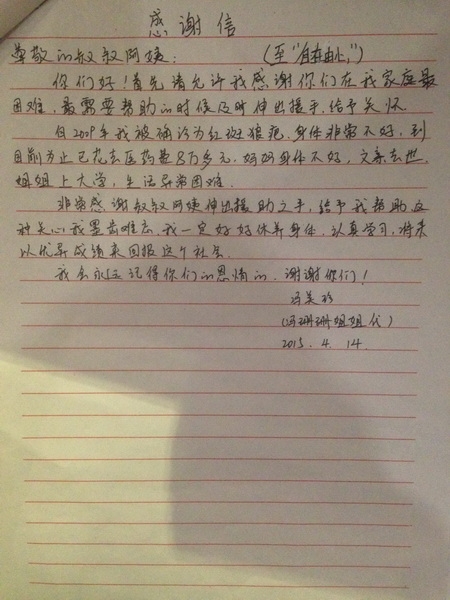 感谢信
尊敬的叔叔阿姨： （至“自在由心”）
你们好！首先请允许我感谢你们在我家庭最
困难、最需要帮助的时候及时伸出援手，给予关怀
自2009年我被确诊为红斑狼疮，身体非常不好，到
目前为止已花去医药费8万多元，妈妈身体不好，父亲去世，
姐姐上大学，生活异常困难。
非常感谢叔叔阿姨伸出援助之手，给予我帮助这
种关心我置若难忘，我一定好好休养身体，认真学习，将来
以优异成绩来回报这个社会。
我会永远记得你们的恩情的，谢谢你们！
冯美珍
（冯珊珊姐姐代）
2015. 4. 14.